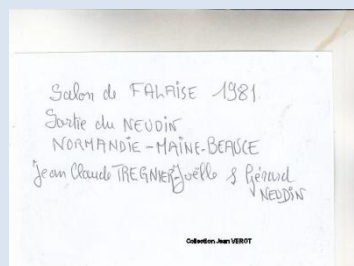 Salon de FALAISE 1981.
Sortie du NEUDIN
NORMANDIE-MAINE-BEAUCE
Jean Claude TREGNIER-Joëlle & Gérard
NEUDIN
Collection Jean VEROT